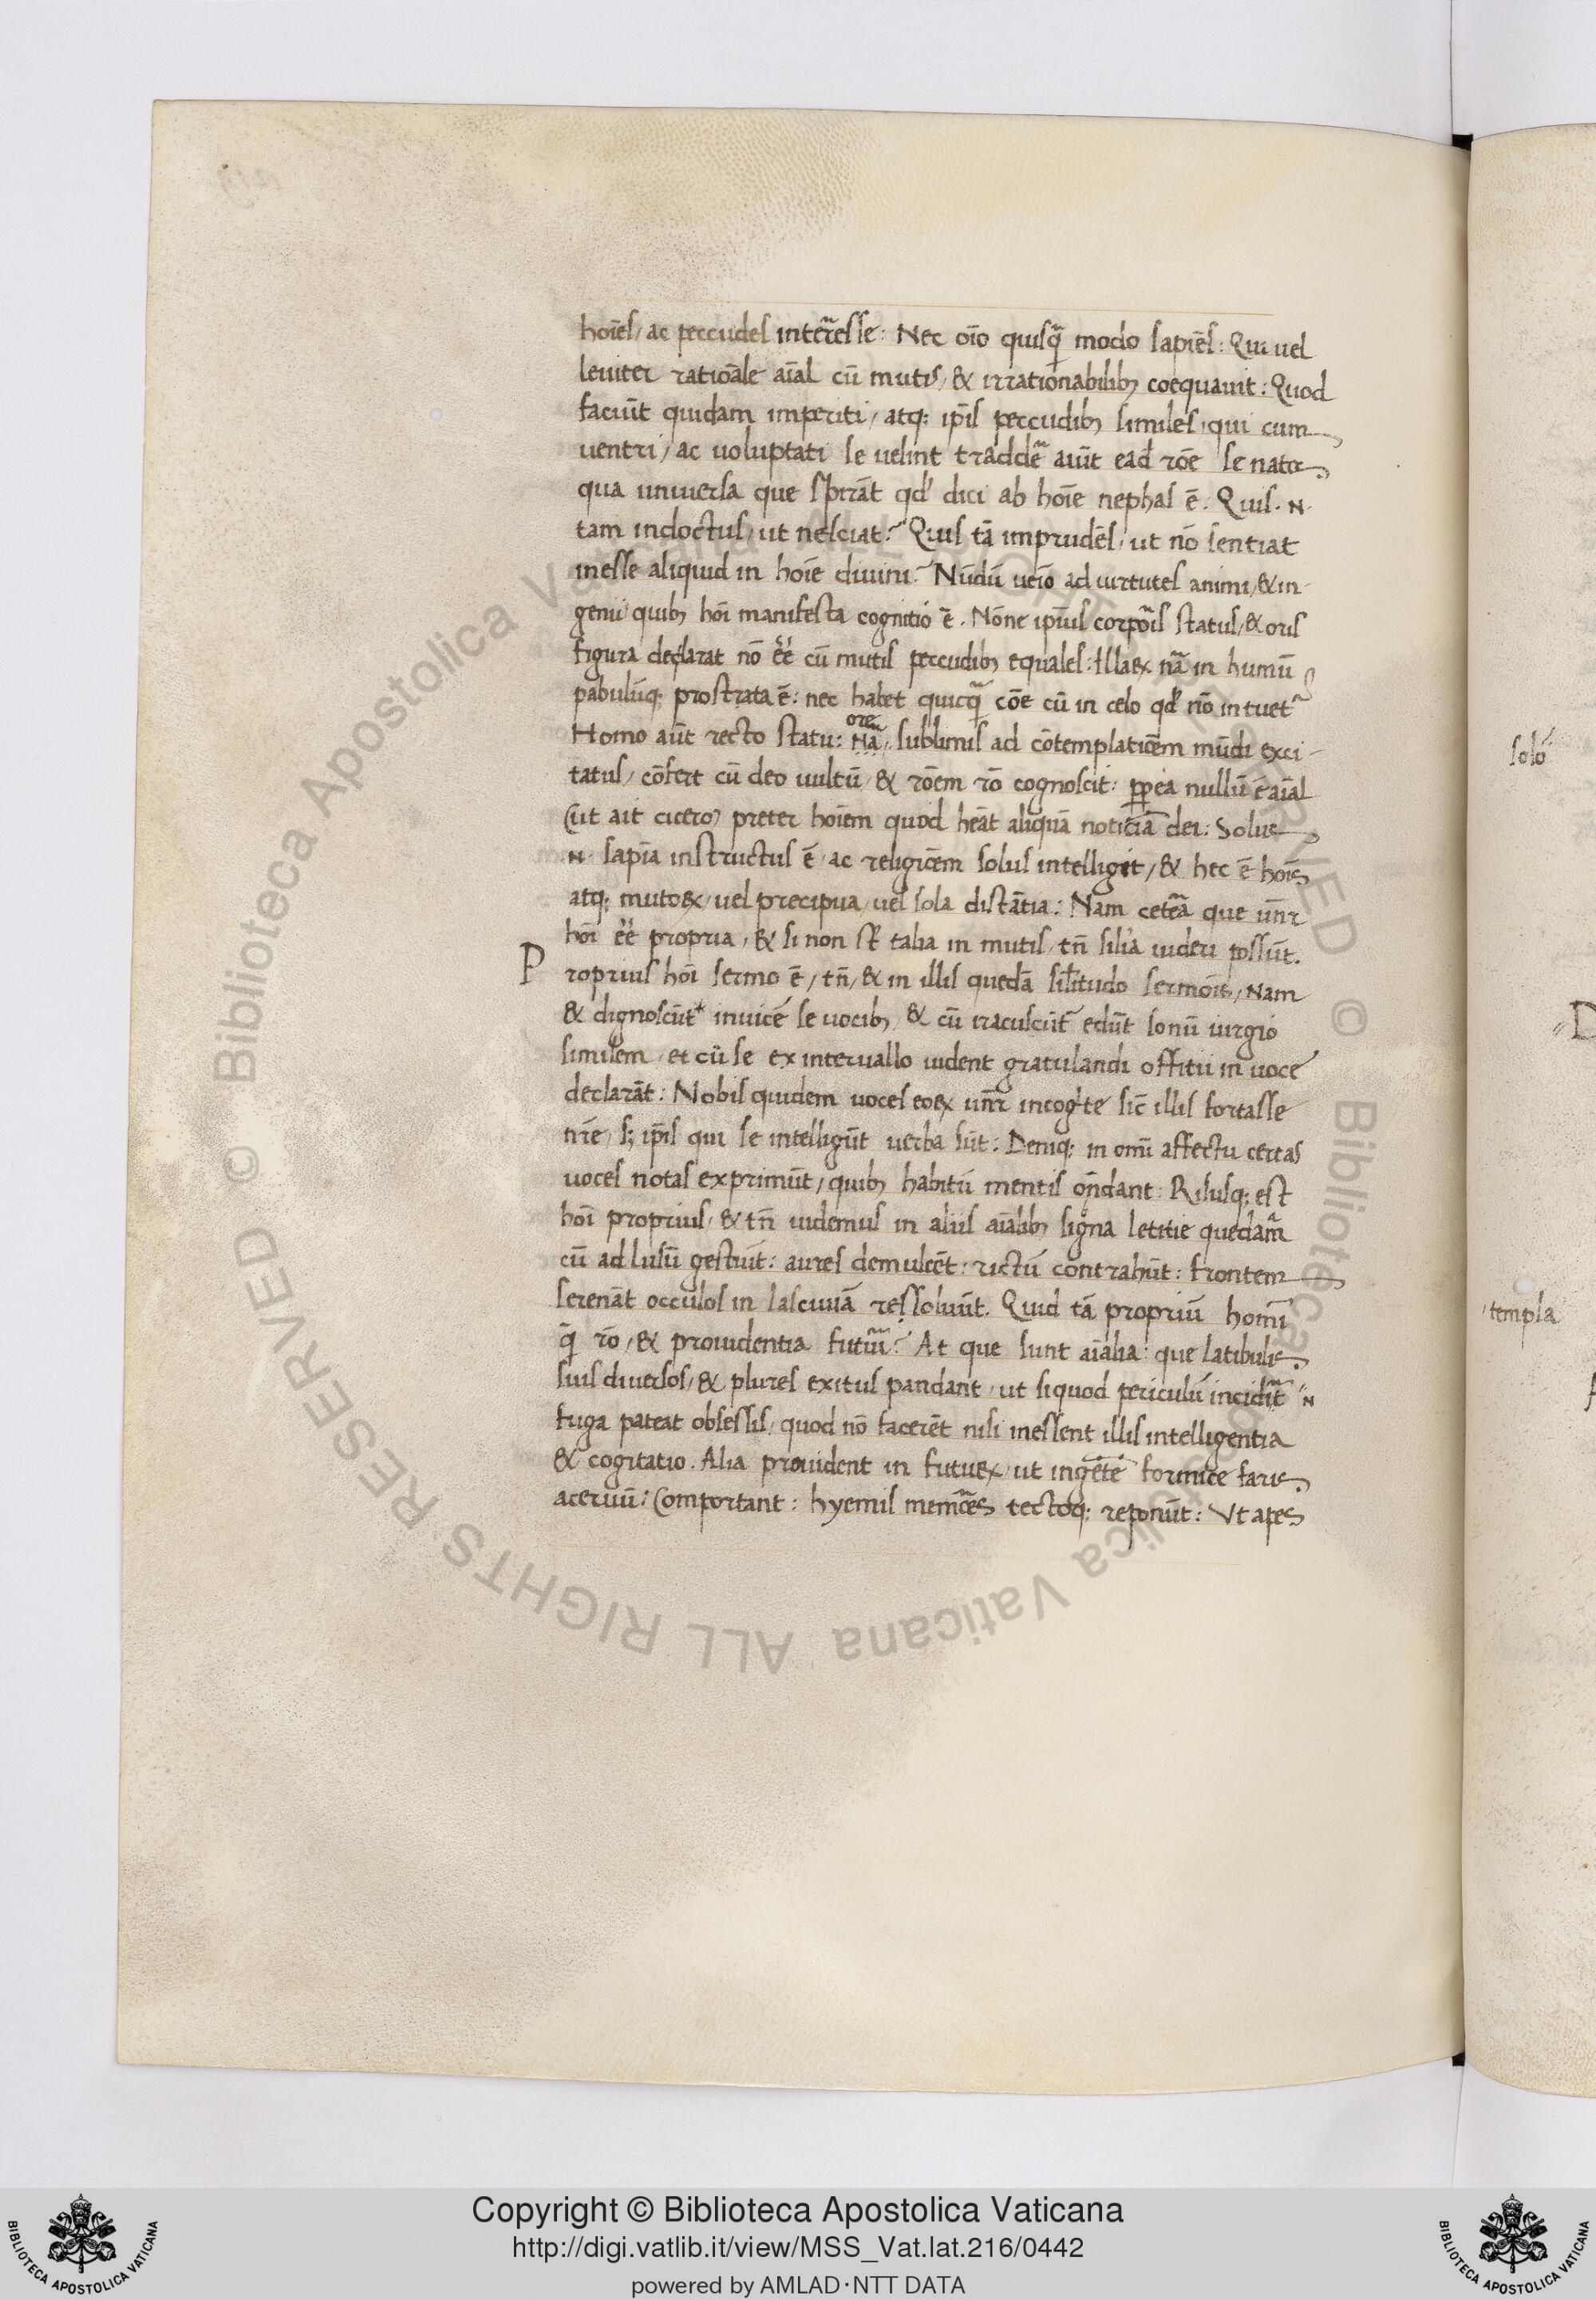 hoīes, ac peccudes interesse: Nec oīo quisq̄ modo sapiēs: Qui vel
leviter rationāle aīal cū mutis, & irrationabilib; coequavit: Quod
faciūt quidam imperiti, atq; ip̄is peccudib; similes, qui cum
ventri, ac voluptati se velint traddē aiūt ead rōe se natos
qua universa que spirāt qd' dici ab hoīe nephas ē. Quis .N.
tam indoctus, ut nesciat? Quis tā imprudēs, ut nō sentiat
inesse aliquid in hoīe divini? Nūdū veīo ad virtutes animi, & in-
genii quib; hoī manifesta cognitio ē. Nōne ip̄ius corpoīs status, & oris
figura declarat nō ēē cū mutis peccudib; equales: Illaꝝ nā in humū
pabulūq; prostrata ē: nec habet quicq̄ cōe cū in celo qd' nō intuet
Homo aūt recto statu: Nā ore, sublimis ad cōtemplatiōem mūdi exci-
tatus, cōfert cū deo vultū, & rōem rō cognoscit: ꝓpea nullū ē aīal
(ut ait cicero) preter hoīem quod heāt aliquā noticiā dei: Solus
.N. sapīa instructus ē, ac religiōem solus intelligit, & hec ē hoīs
atq; mutoꝝ, vel precipua, vel sola distātia: Nam ceteā que vn̄r
hoī ēē propria, & si non st talia in mutis, tn̄ silia videri possūt.
Proprius hoī sermo ē, tn̄, & in illis quedā silitudo sermoīs, Nam
& dignoscūt invicē se vocib;, & cū irascūt edūt sonū iurgio
similem, et cū se ex intervallo vident gratulandi offitiū in voce
declarāt: Nobis quidem voces eoꝝ vn̄r incogte sic illis fortasse
nr̄e, s; ip̄is qui se intelligūt verba sūt: Deniq; in omī affectu certas
voces notas exprimūt, quib; habitū mentis on̄dant: Risusq; est
hoī proprius, & tn̄ videmus in aliis aīalib; signa letitie quedam
cū ad lusū gestiūt: aures demulcēt: rictū contrahūt: frontem
serenāt occulos in lasciviā ressolvūt. Quid tā propriū homī
q̄ rō, & providentia futuī? At que sunt aīalia: que latibulis
suis diversos, & plures exitus pandant, ut siquod periculū incidīt "N
fuga pateat obsessis, quod nō facerēt nisi inessent illis intelligentia
& cogitatio. Alia provident in futuꝝ, ut ingētē formice faris
acervū: Comportant: hyemis memōes tectoq; reponūt: Vt apes
solo
D
templa
Copyright © Biblioteca Apostolica Vaticana
http://digi.vatlib.it/view/MSS_Vat.lat.216/0442
powered by AMLAD·NTT DATA
BIBLIOTECA APOSTOLICA VATICANA
BIBLIOTECA APOSTOLICA VATICANA
© Biblioteca Apostolica Vaticana ALL RIGHTS RESERVED
© Biblioteca Apostolica Vaticana ALL RIGHTS RESERVED